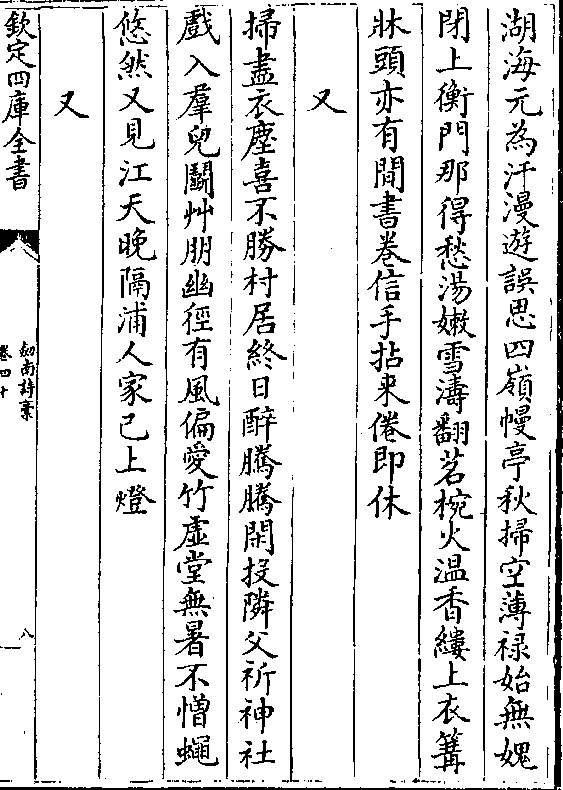 湖海元為汗漫遊誤思四嶺幔亭秋掃空薄禄始無媿
閉上衡門那得愁湯嫩雪濤翻茗椀火温香縷上衣篝
牀頭亦有閒書卷信手拈来倦即休
又
掃盡衣塵喜不勝村居終日醉騰騰閑投隣父祈神社
戲入羣兒鬭艸朋幽徑有風偏愛竹虛堂無暑不憎蠅
悠然又見江天晚隔浦人家已上燈
又
欽定四庫全書
劍南詩稾
卷四十
八